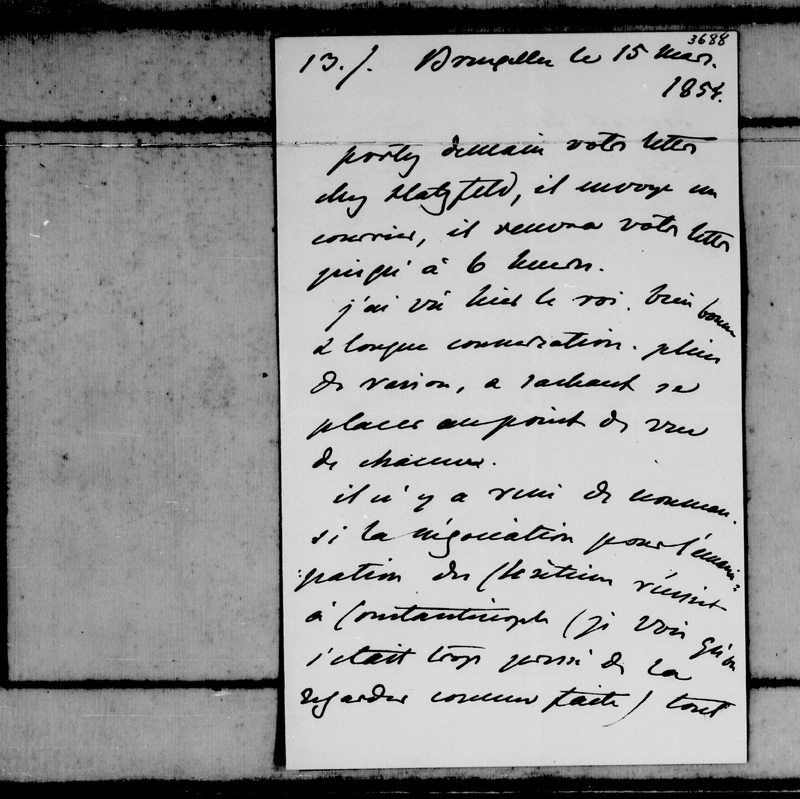 3688
13./. Bruxelles le 15 Mars.
1854.
portez demain votre lettre
chez Hatzfeld, il envoye un
courrier, il recevra votre lettre
jusqu'à 6 heures.
j'ai vu hier le roi. bien bonne
& longue conversation. plein
de raison, & sachant se
placer au point de vue
de chacun.
il n'y a rien de nouveau.
si la négociation pour l'émanci=
:pation des Chrétiens réussit
à Constantinople (je vois qu'on
s'était trop pressé de la
regarder comme faite) tout